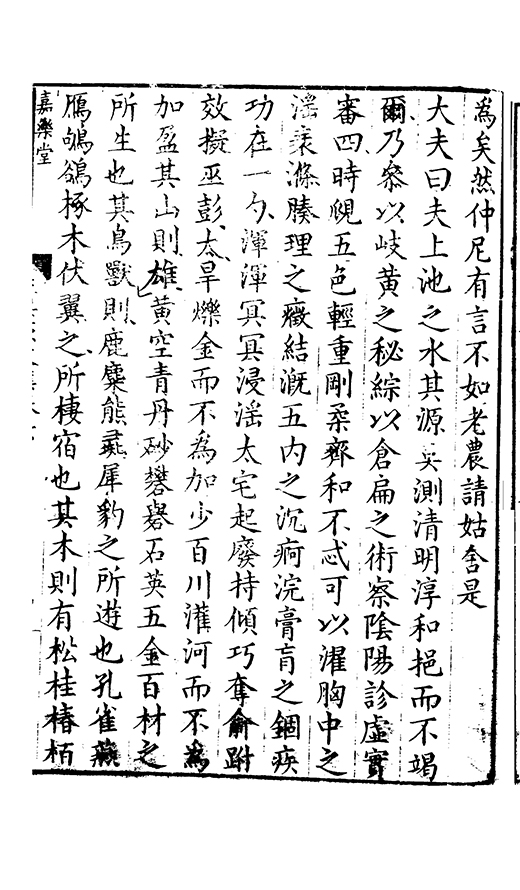 為矣然仲尼有言不如老農請姑舍是
大夫曰夫上池之水其源莫測清明淳和挹而不竭
爾乃參以岐黃之秘綜以倉扁之術察陰陽診虛實
審四時覘五色輕重剛柔齊和不忒可以濯胸中之
滛裹滌腠理之癥結溉五內之沉痾浣膏肓之錮疾
功在一勺渾渾冥冥浸滛太宅起廢持傾巧奪俞跗
效擬巫彭大旱爍金而不為加少百川灌河而不為
加盈其山則雄黃空青丹砂礬礜石英五金百材之
所生也其鳥獸則鹿麋熊彘犀豹之所遊也孔雀
鴈鴝鵒椓木伏翼之所棲宿也其木則有松桂椿栢
嘉樂堂